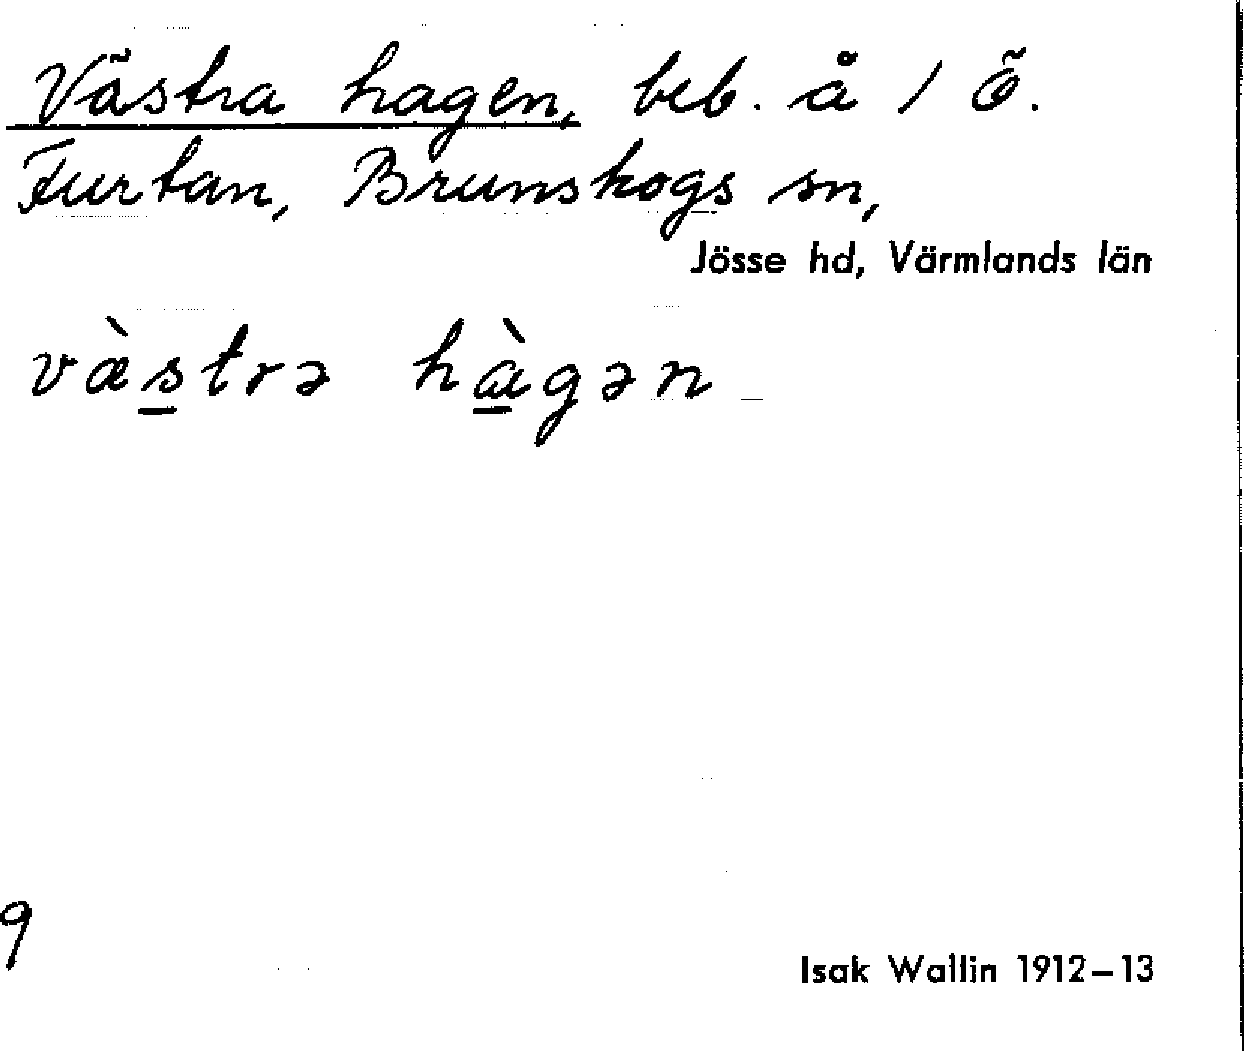 Västra hagen, beb. å 1 Ö.
Furtan, Brunskogs sn,
Jösse hd, Värmlands län
væ̀strə hàgən
9
Isak Wallin 1912–13